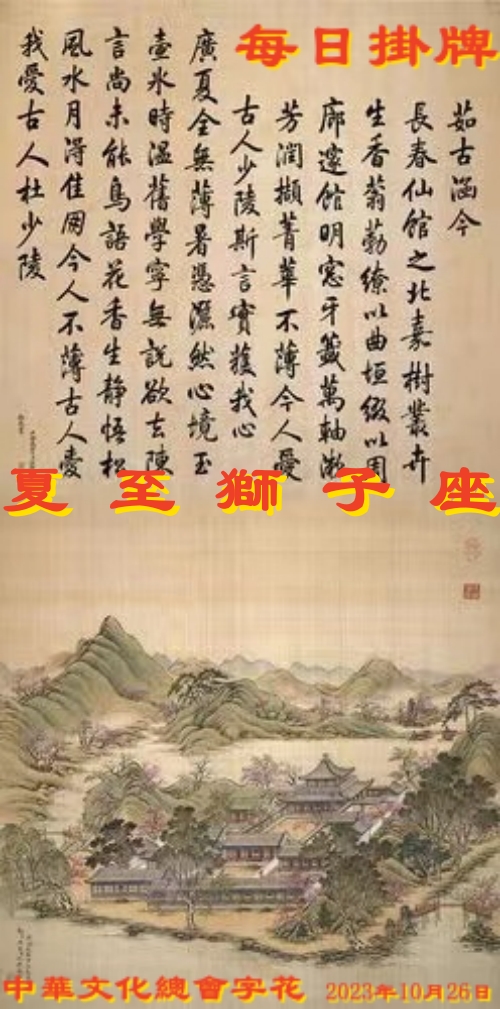 每日掛牌
茹古涵今
長春仙館之北嘉樹叢卉
生香蓊勃繚以曲垣綴以周
廊邃館明窓牙籤萬軸漱
芳潤擷菁華不薄今人愛
古人少陵斯言實獲我心
廣夏全無薄暑憑灑然心境玉
壺氷時溫舊學寧無說欲去陳
言尚未能鳥語花香生靜悟松
風水月淂佳朋今人不薄古人愛
我愛古人杜少陵
夏至獅子座
中華文化總會字花 2023年10月26日